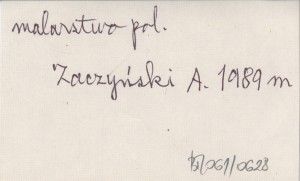 malarstwo pol.
Zaczyński A. 1989 m
/061/0628